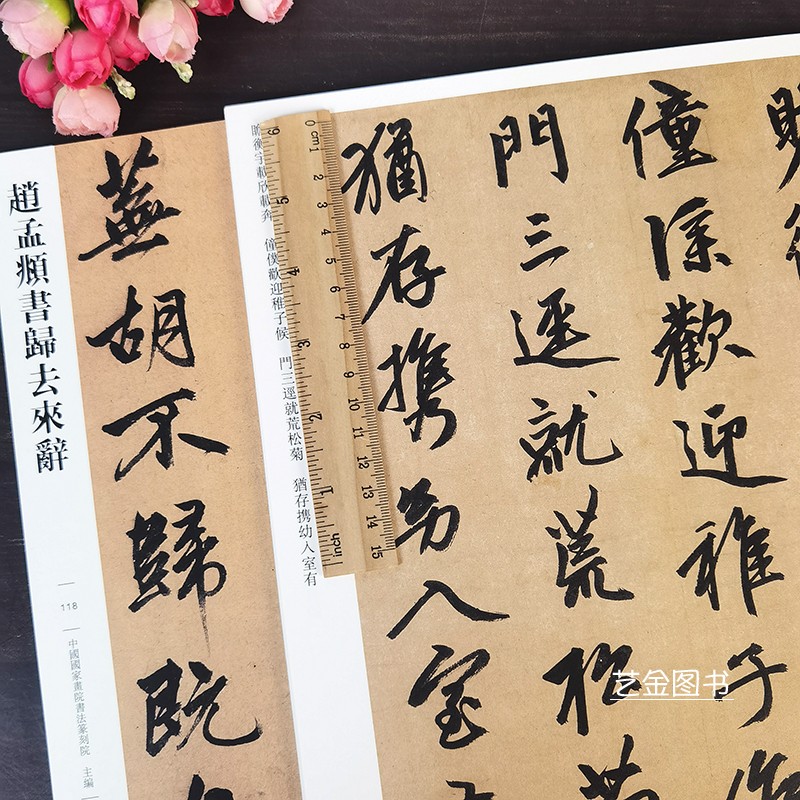 趙孟頫書歸去來辭
118
中國國家畫院書法篆刻院 主編
蕪胡不歸既
瞻衡宇載欣載奔 僮僕歡迎稚子候 門三逕就荒松菊 猶存携幼入室有
僮僕歡迎稚子
門三逕就荒松菊
猶存携幼入室
0 cm 1 2 3 4 5 6 7 8 9 10 11 12 13 14 15
6 5 4 3 2 1 inch
艺金图书